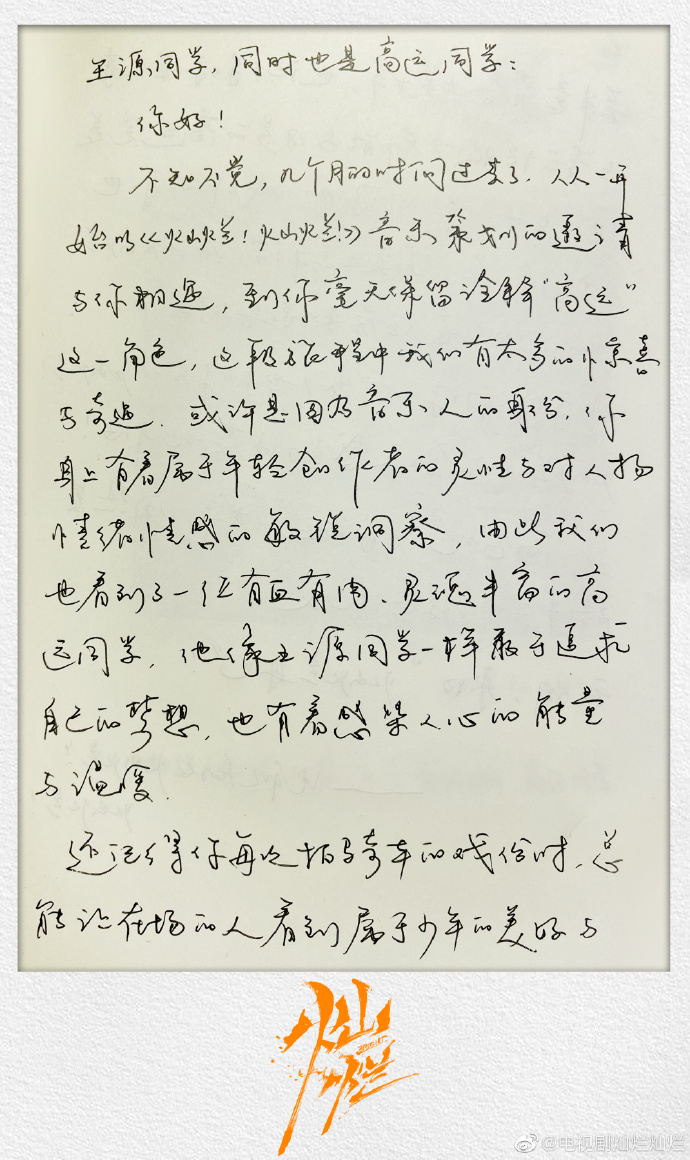 王源同学，同时也是高远同学：
你好！
不知不觉，九个月的时间过去了。从一开
始的《灿烂！灿烂！》音乐策划的邀请
与你相遇，到你毫无保留诠释“高远”
这一角色，这段旅程中我们有太多的惊喜
与奇遇。或许是因为音乐人的身份，你
身上有着属于年轻创作者的灵性与对人物
情绪情感的敏锐洞察，由此我们
也看到了一位有血有肉、灵魂丰富的高
远同学，他像王源同学一样敢于追求
自己的梦想，也有着感染人心的能量
与温暖。
还记得你每次拍骑车的戏份时，总
能让在场的人看到属于少年的美好与
灿烂
@电视剧灿烂灿烂